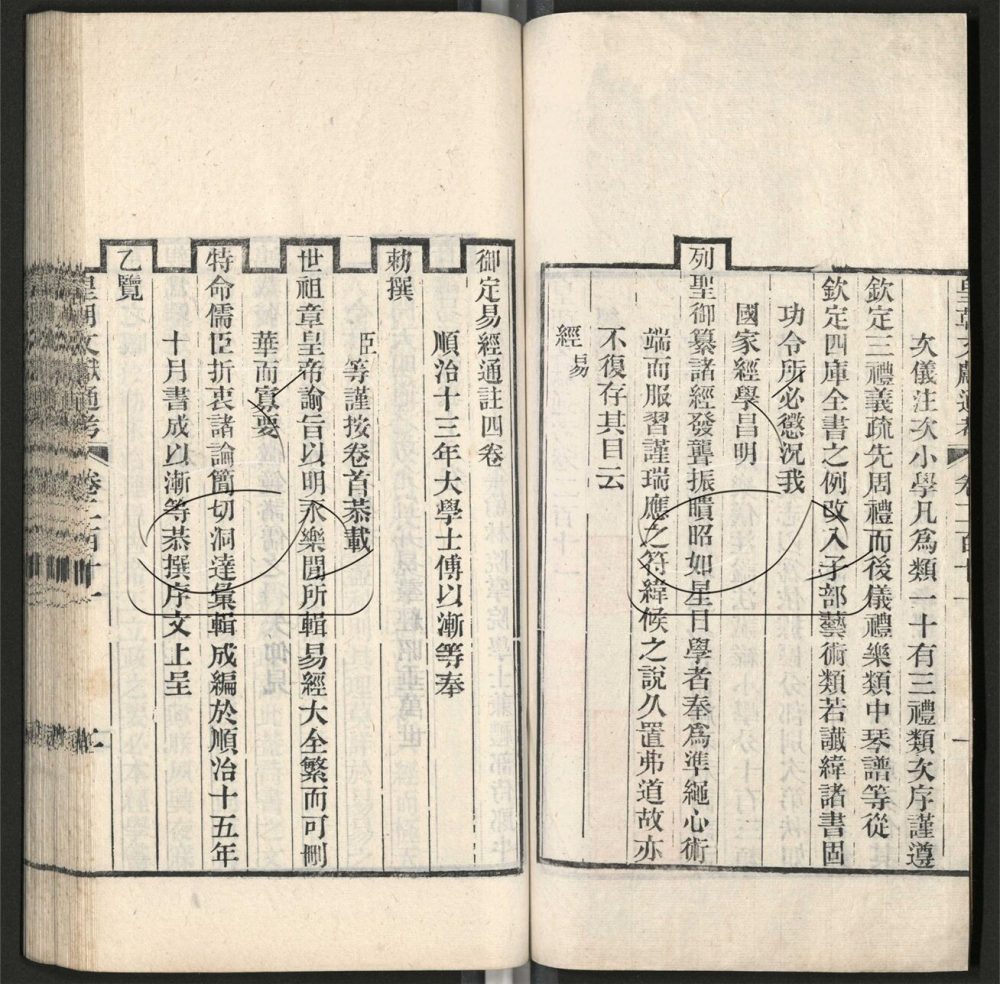 皇朝文獻通考 卷二百十一 一
次儀注次小學凡爲類一十有三禮類次序謹遵
欽定三禮義疏先周禮而後儀禮樂類中琴譜等從
欽定四庫全書之例改入子部藝術類若讖緯諸書固
功令所必懲況我
國家經學昌明
列聖御纂諸經發聾振聵昭如星日學者奉爲準繩心術
端而服習謹瑞應之符緯候之說久置弗道故亦
不復存其目云
經易
御定易經通註四卷
順治十三年大學士傅以漸等奉
勅撰
臣等謹按卷首恭載
世祖章皇帝諭旨以明永樂閒所輯易經大全繁而可刪
華而寡要
特命儒臣折衷諸論簡切洞達彙輯成編於順治十五年
十月書成以漸等恭撰序文上呈
乙覽
皇朝文獻通考 卷二百十一 二